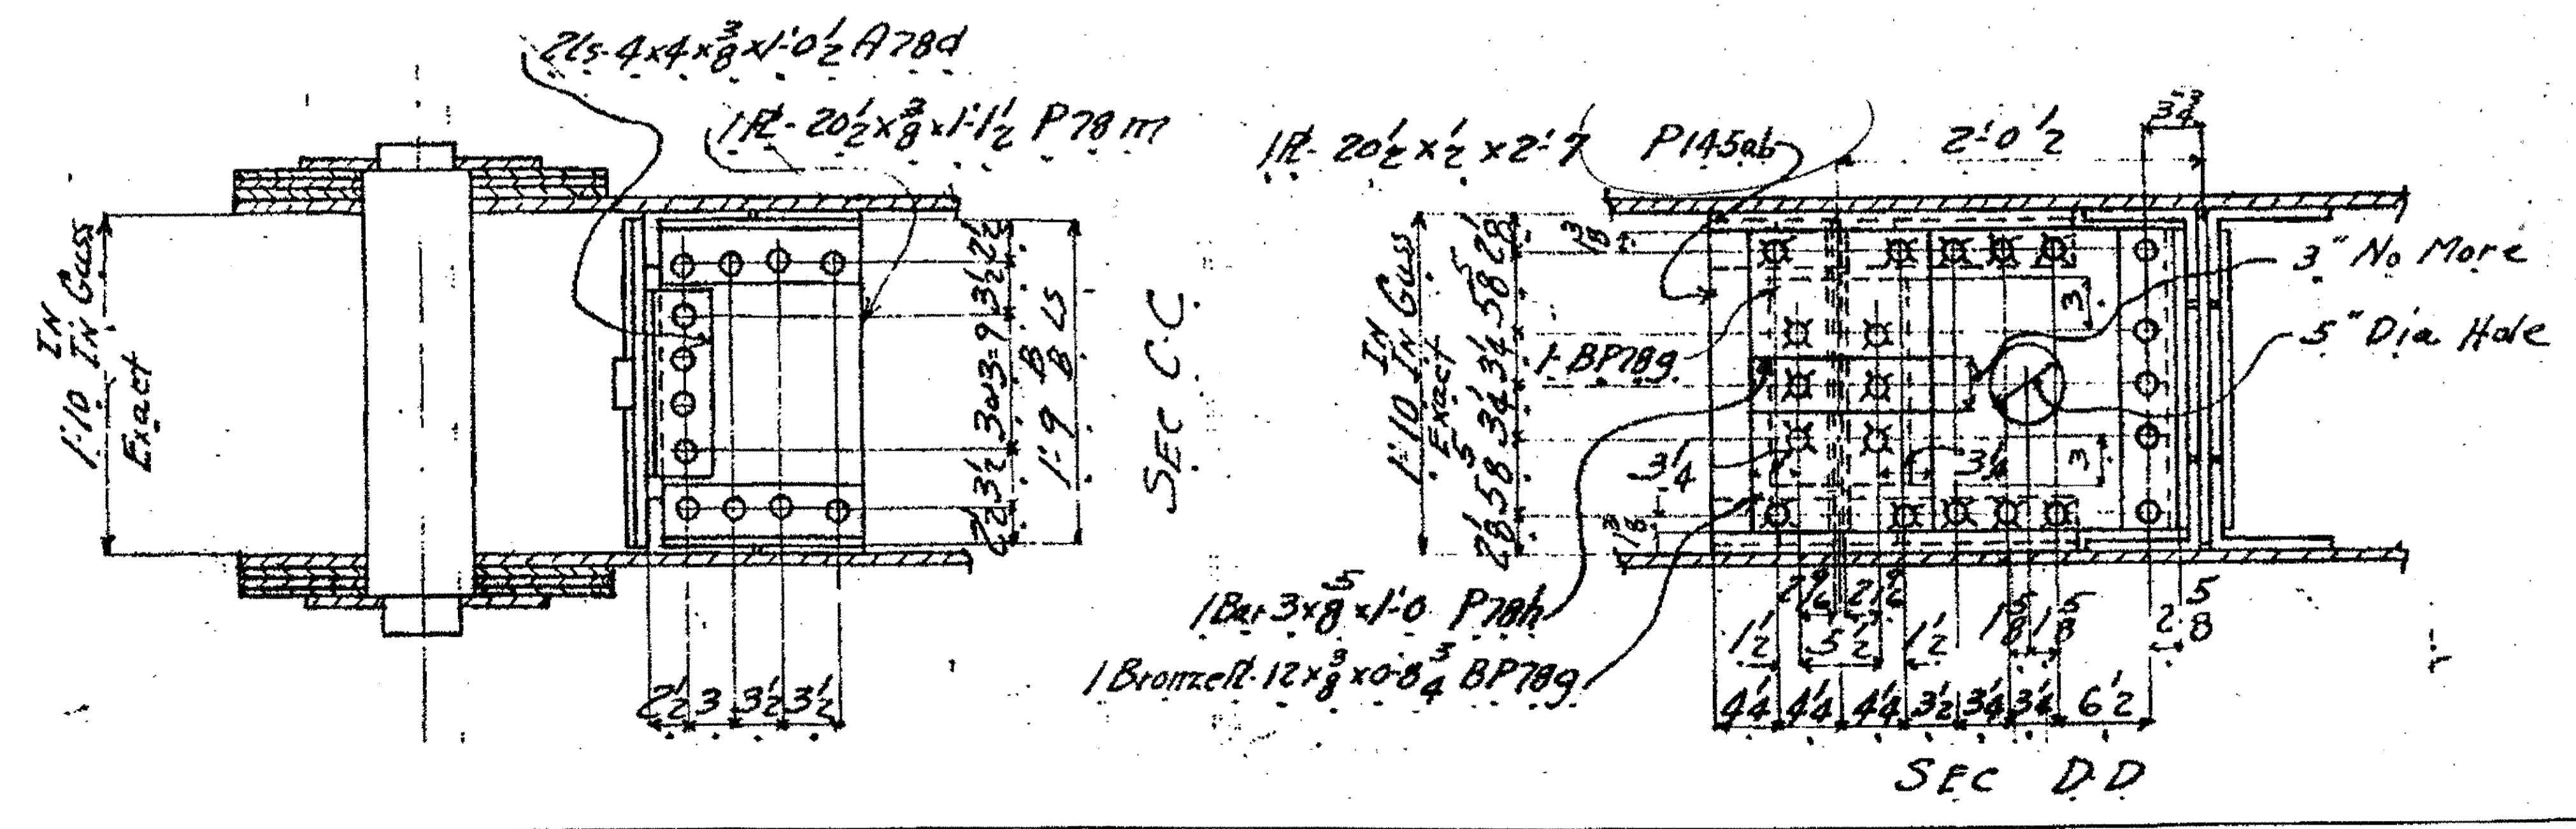 2Ls-4x4x3/8x1'-0 1/2 A78d
1 PL-20 1/2 x 3/8 x 1'-1 1/2 P78m
1'-10 IN IN Guss
Exact
2 1/2 3 1/2 3@3=9 3 1/2 2 1/2
1'-9 B B Ls
SEC C-C.
2 1/2 3 3 1/2 3 1/2
1 PL- 20 1/2 x 1/2 x 2'-7 P145ab
2'-0 1/2
3 3/4
1 3/8
1'-10 IN IN Guss
Exact
2 1/8 5 5/8 3 1/4 3 1/4 5 5/8 2 1/8
1-BP78g
3
3" No More
5" Dia Hole
3 1/4
3 1/4
3
1 3/8
1 Bar 3x5/8x1'-0 P78h
1 Bronze PL-12x3/8x0-8 3/4 BP78g
1 1/2 5 1/2 1 1/2 1 5/8 1 5/8 2 5/8
4 1/4 4 1/4 4 1/4 3 1/2 3 1/4 3 1/4 6 1/2
SEC D-D